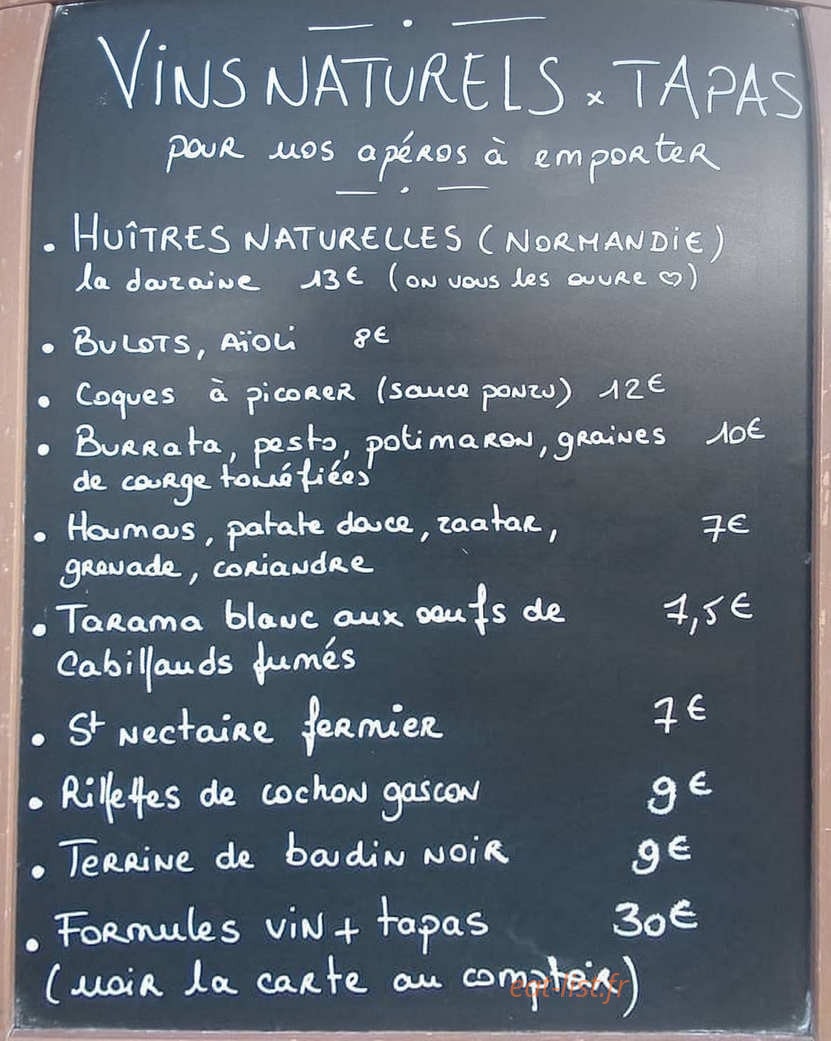 VINS NATURELS x TAPAS
pour nos apéros à emporter
• HUÎTRES NATURELLES (NORMANDIE)
la douzaine 13€ (on vous les ouvre ♡)
• BULOTS, AÏOLI 8€
• Coques à picorer (sauce ponzu) 12€
• Burrata, pesto, potimaron, graines 10€
de courge torréfiées
• Houmous, patate douce, zaatar, 7€
grenade, coriandre
• Tarama blanc aux oeufs de 7,5€
Cabillauds fumés
• St Nectaire fermier 7€
• Rillettes de cochon gascon 9€
• Terrine de boudin noir 9€
• Formules vin + tapas 30€
(voir la carte au comptoir)
eat-list.fr